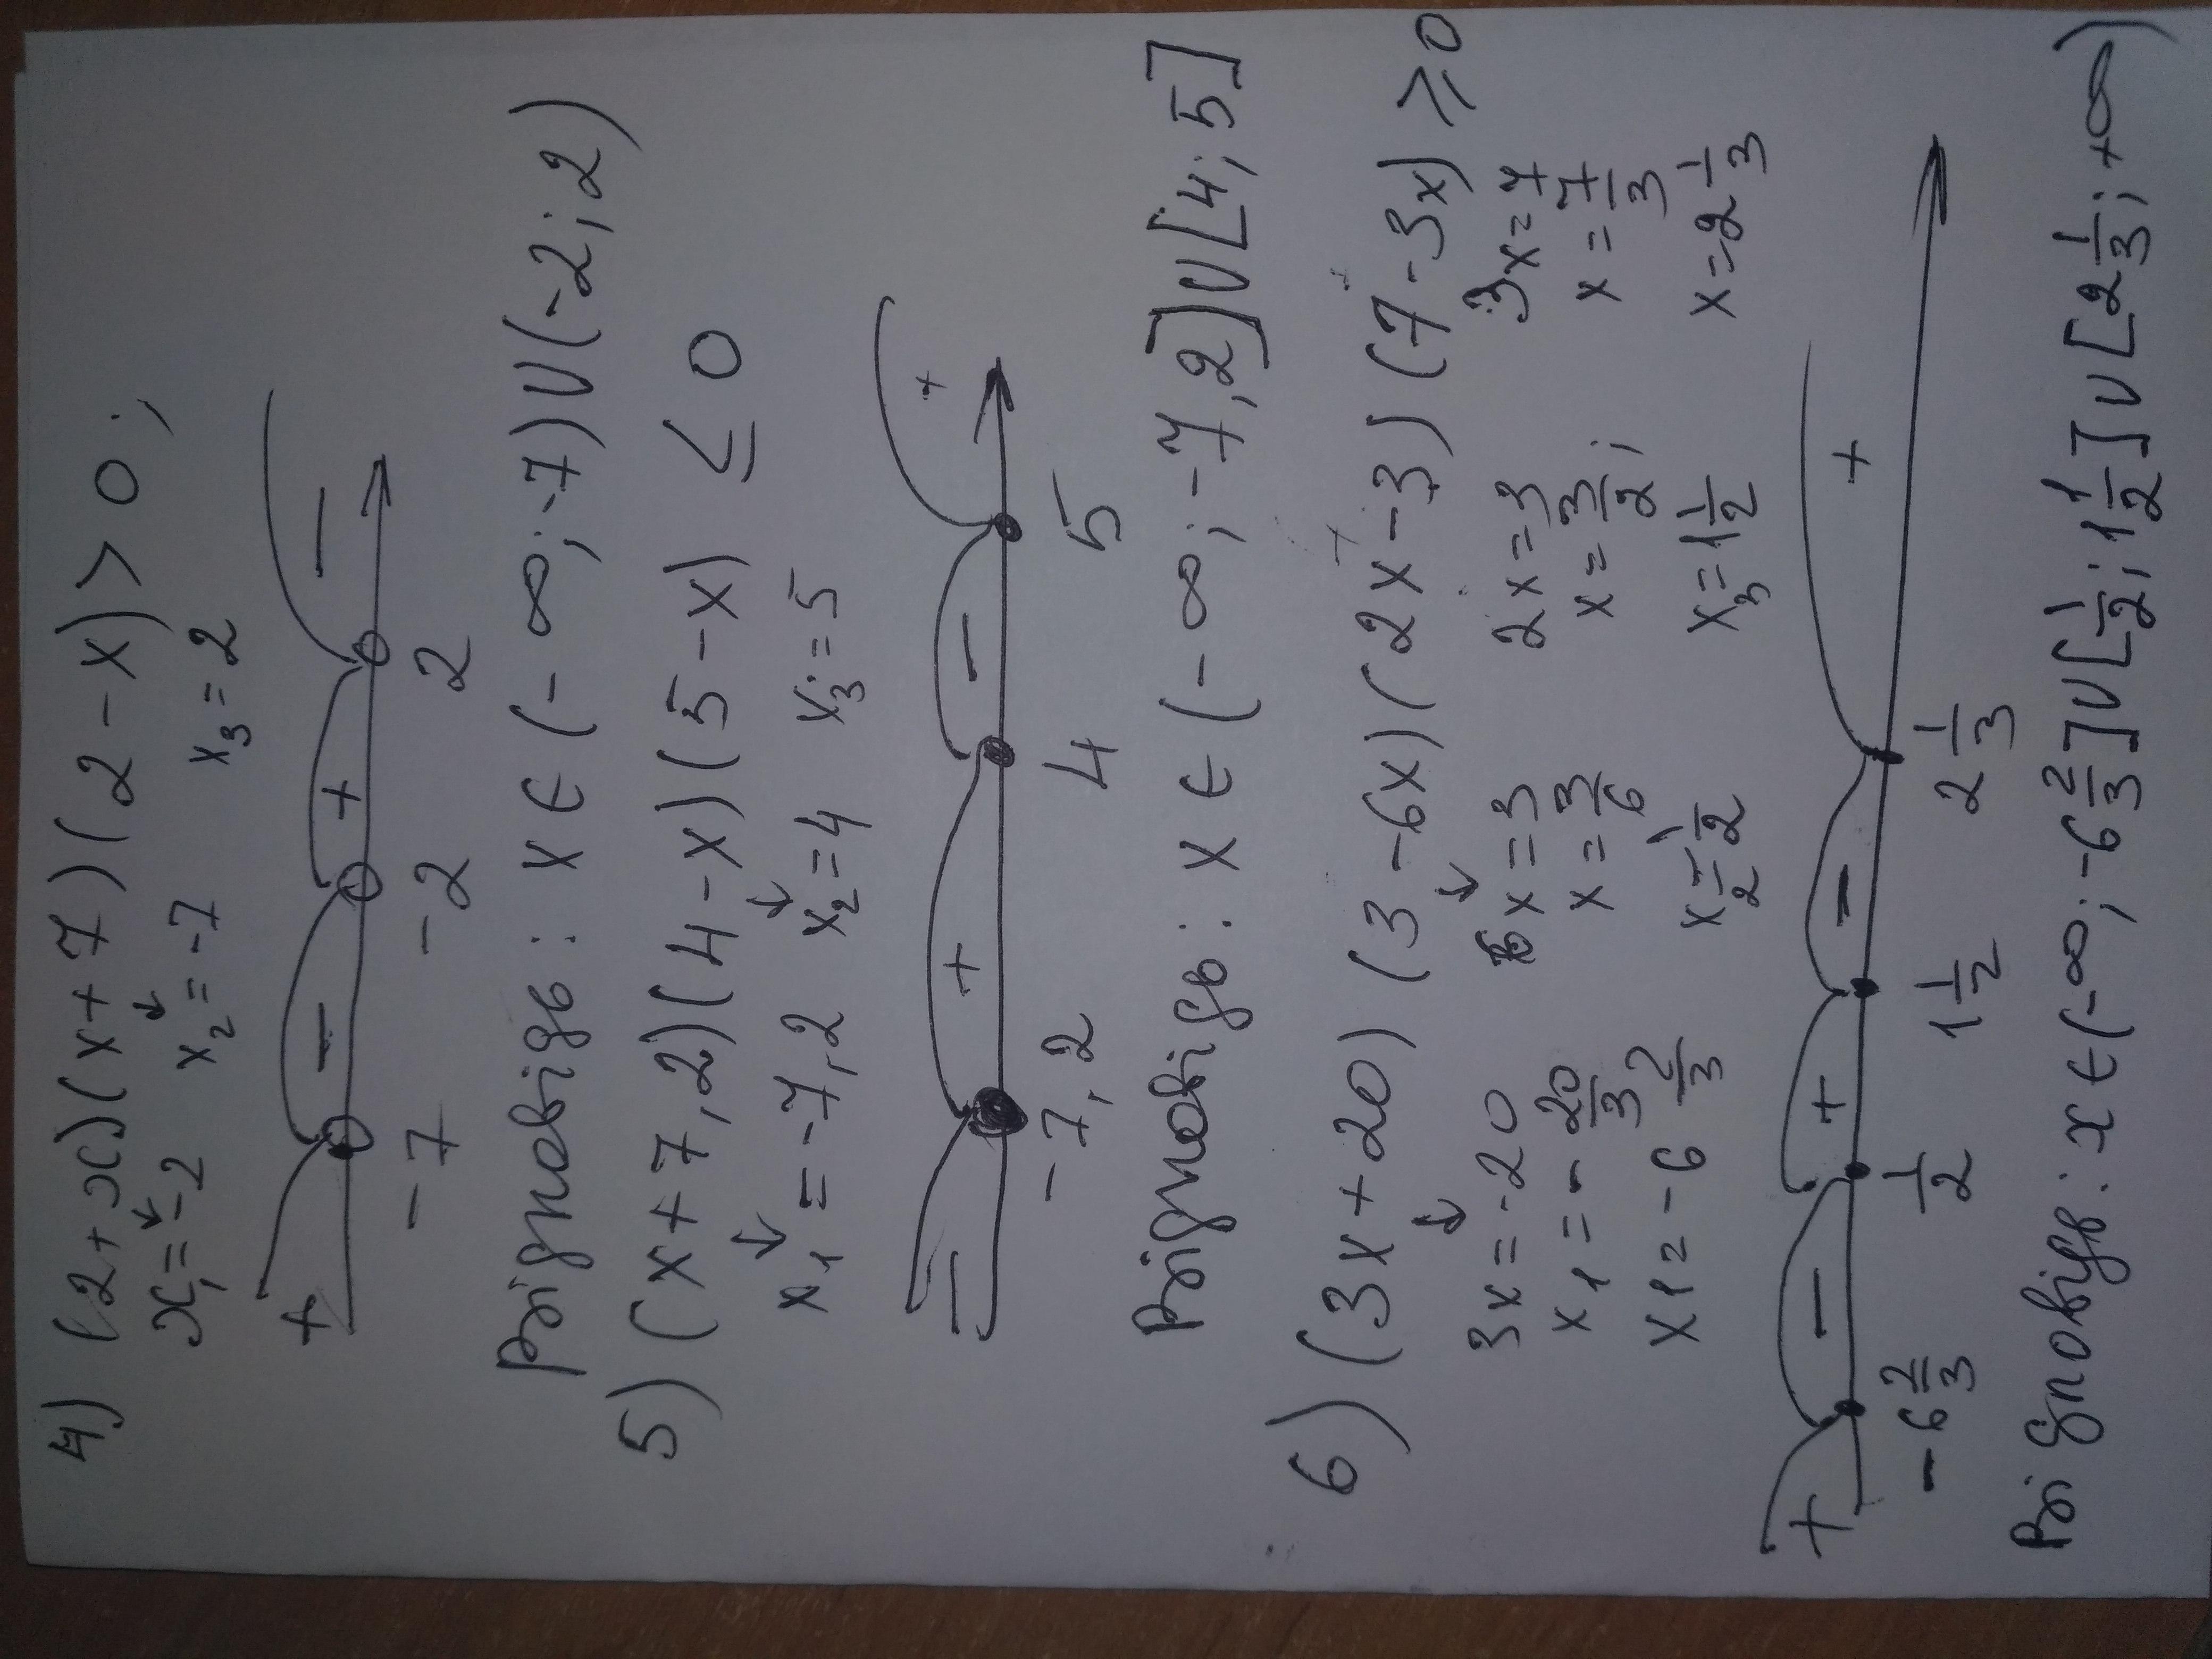 4) (2+x)(x+7)(2-x)>0;
x₁=-2 x₂=-7 x₃=2
+ - + -
-7 -2 2
Відповідь: x∈(-∞;-7)∪(-2;2)
5) (x+7,2)(4-x)(5-x) ≤ 0
x₁=-7,2 x₂=4 x₃=5
- + - +
-7,2 4 5
Відповідь: x∈(-∞;-7,2]∪[4;5]
6) (3x+20)(3-6x)(2x-3)(7-3x)≥0
3x=-20 6x=3 2x=3 3x=7
x₁=-20/3 x=3/6 x=3/2; x=7/3
x₁=-6 2/3 x₂=1/2 x₃=1 1/2 x=2 1/3
+ - + - +
-6 2/3 1/2 1 1/2 2 1/3
Відповідь: x∈(-∞;-6 2/3]∪[1/2;1 1/2]∪[2 1/3;+∞)